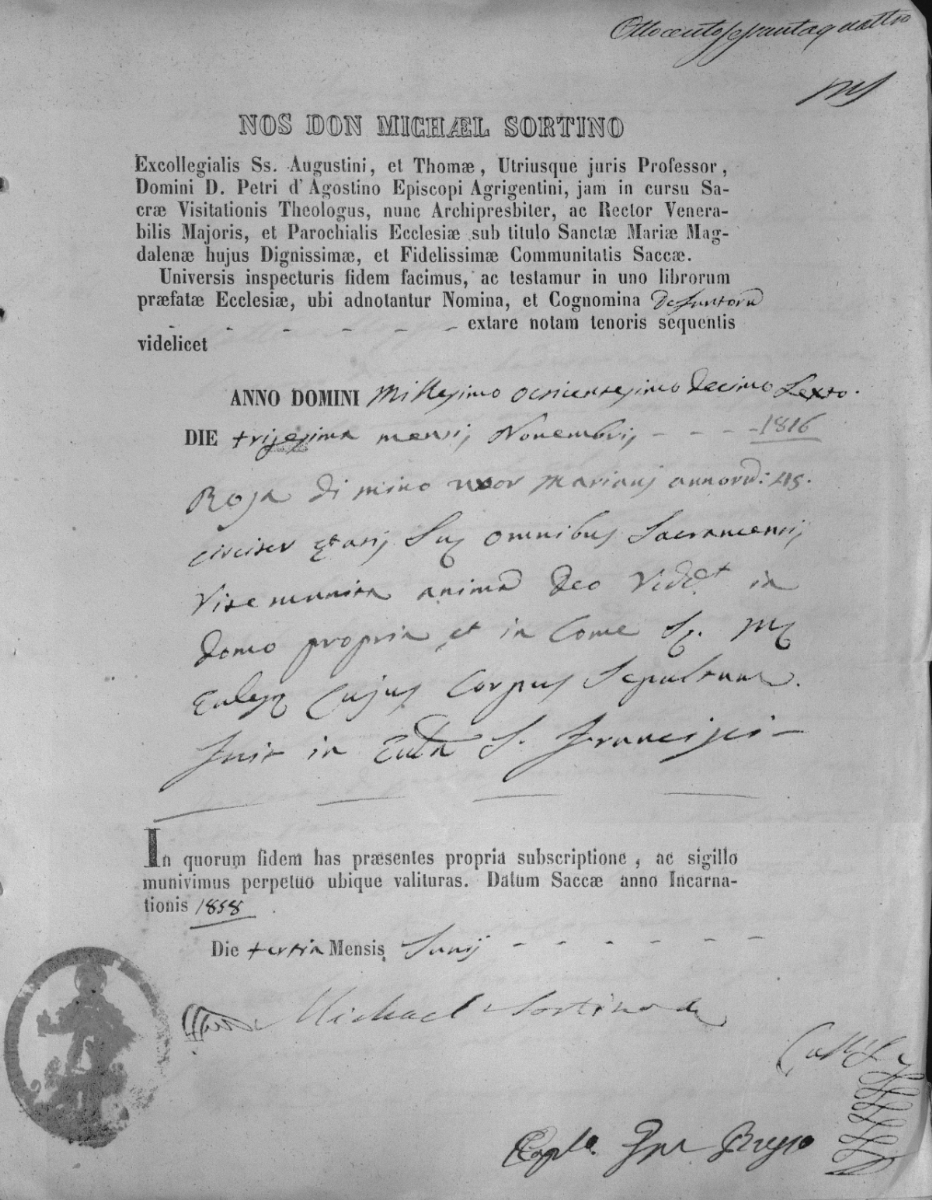 Ottocentosessantaquattro
NOS DON MICHÆL SORTINO
Excollegialis Ss. Augustini, et Thomæ, Utriusque juris Professor,
Domini D. Petri d'Agostino Episcopi Agrigentini, jam in cursu Sa-
cræ Visitationis Theologus, nunc Archipresbiter, ac Rector Venera-
bilis Majoris, et Parochialis Ecclesiæ sub titulo Sanctæ Mariæ Mag-
dalenæ hujus Dignissimæ, et Fidelissimæ Communitatis Saccæ.
Universis inspecturis fidem facimus, ac testamur in uno librorum
præfatæ Ecclesiæ, ubi adnotantur Nomina, et Cognomina defunctorũ
- - - - - - - extare notam tenoris sequentis
videlicet
ANNO DOMINI Millesimo octincentesimo decimo sexto.
DIE trigesima mensis Novembris - - - - 1816
Rosa di mino uxor Marianis annorũ: 45.
circiter etatis sue omnibus Sacramentis
Rite munita animã deo Viddt in
domo propria, et in Come S. M.
Ecclesie Cujus Corpus Sepultum
fuit in Eccla S. Francisci -
In quorum fidem has præsentes propria subscriptione, ac sigillo
munivimus perpetuo ubique valituras. Datum Saccæ anno Incarna-
tionis 1858
Die tertia Mensis Junij - - - - - - -
Michael Sortino